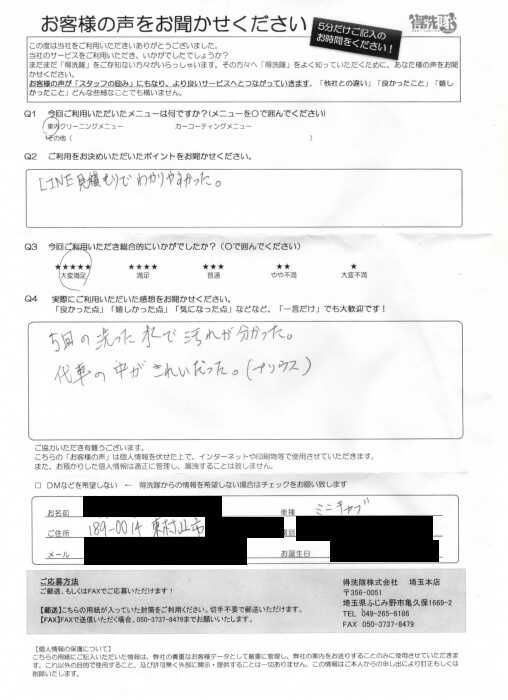 お客様の声をお聞かせください
5分だけご記入の
お時間をください！
得洗隊
この度は当社をご利用いただきありがとうございました。
当社のサービスをご利用いただき、いかがでしたでしょうか？
まだまだ「得洗隊」をご存知ない方々がいらっしゃいます。その方々へ「得洗隊」をよく知っていただくために、あなた様の声をお聞かせください。
お客様の声が「スタッフの励み」にもなり、より良いサービスへとつながっていきます。「他社との違い」「良かったこと」「嬉しかったこと」どんな些細なことでも構いません。
Q1 今回ご利用いただいたメニューは何ですか？(メニューを〇で囲んでください)
車内クリーニングメニュー カーコーティングメニュー
その他（ ）
Q2 ご利用をお決めいただいたポイントをお聞かせください。
LINE見積もりでわかりやすかった。
Q3 今回ご利用いただき総合的にいかがでしたか？（〇で囲んでください）
★★★★★ ★★★★ ★★★ ★★ ★
大変満足 満足 普通 やや不満 大変不満
Q4 実際にご利用いただいた感想をお聞かせください。
「良かった点」「嬉しかった点」「気になった点」などなど、「一言だけ」でも大歓迎です！
5回の洗った水で汚れが分かった。
代車の中がきれいだった。(プリウス)
ご協力いただき有難うございます。
こちらの「お客様の声」は個人情報を伏せた上で、インターネットや印刷物等で使用させていただきます。
また、お預かりした個人情報は適正に管理し、漏洩することは致しません。
□ DMなどを希望しない ← 得洗隊からの情報を希望しない場合はチェックをお願い致します
お名前 車種 ミニキャブ
ご住所 189-0014 東村山市
メール お誕生日
ご応募方法
ご郵送、もしくはFAXでご応募いただけます！
【郵送】こちらの用紙が入っていた封筒をご利用ください。切手不要で郵送いただけます。
【FAX】FAXで送信いただく場合、050-3737-8479までお願いいたします。
得洗隊株式会社 埼玉本店
〒356-0051
埼玉県ふじみ野市亀久保1669-2
TEL 049-265-6186
FAX 050-3737-8479
【個人情報の保護について】
こちらの用紙にご記入いただいた情報は、弊社の貴重なお客様データとして厳重に管理し、弊社の案内をお送りすることのみに使用させていただきます。これ以外の目的で使用すること、及び許可無く外部に開示・提供することは一切ありません。この情報はご本人からの申し出により訂正もしくは削除いたします。